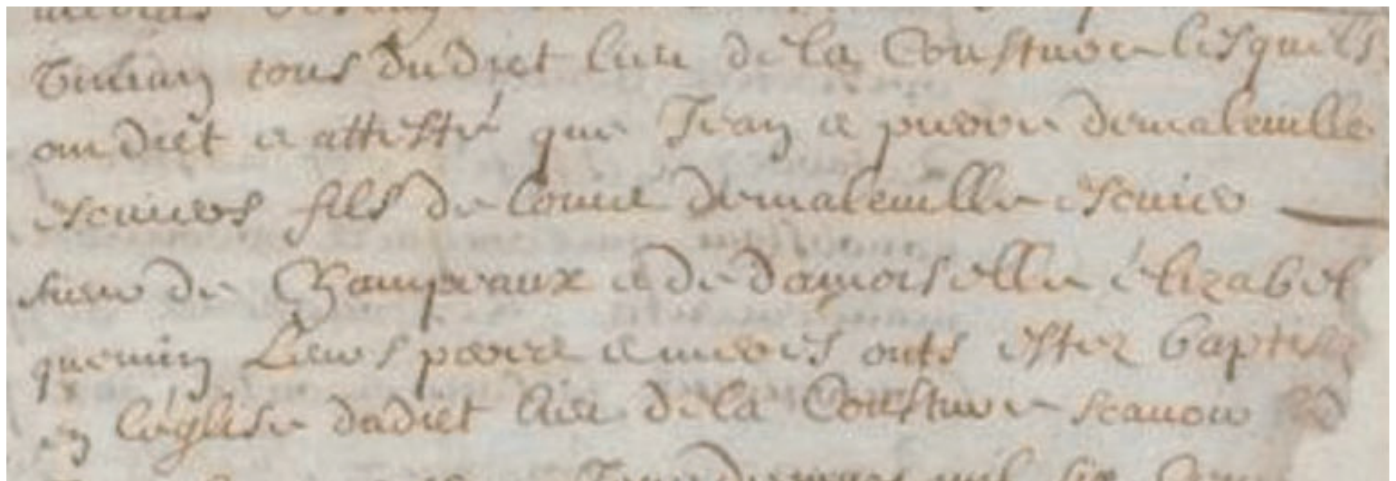 tous dudict lieu de la Cousture lesquels
ont dict et attesté que Jean et pierre demaleuille
escuiers fils de Louis demaleuille escuier
sieur de Champeaux et de damoiselle élizabet
Leurs peres et meres onts estez baptisé
en léglise dudict lieu de la Cousture scauoir